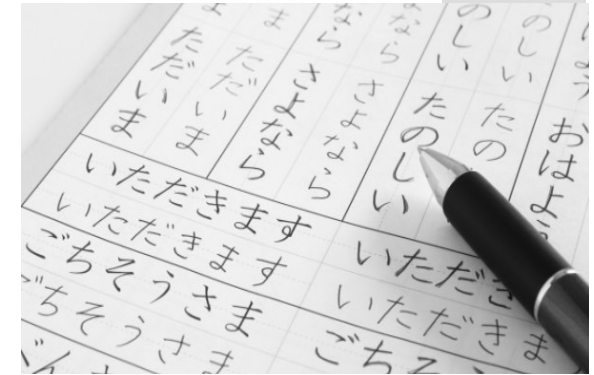 おはよう
のしい たの
のしい たのしい
なら さよなら
なら さよなら
ま ただいま
ま ただいま
いただきます いただき
いただきます いただきま
ごちそうさま ごちそ
ごちそうさま